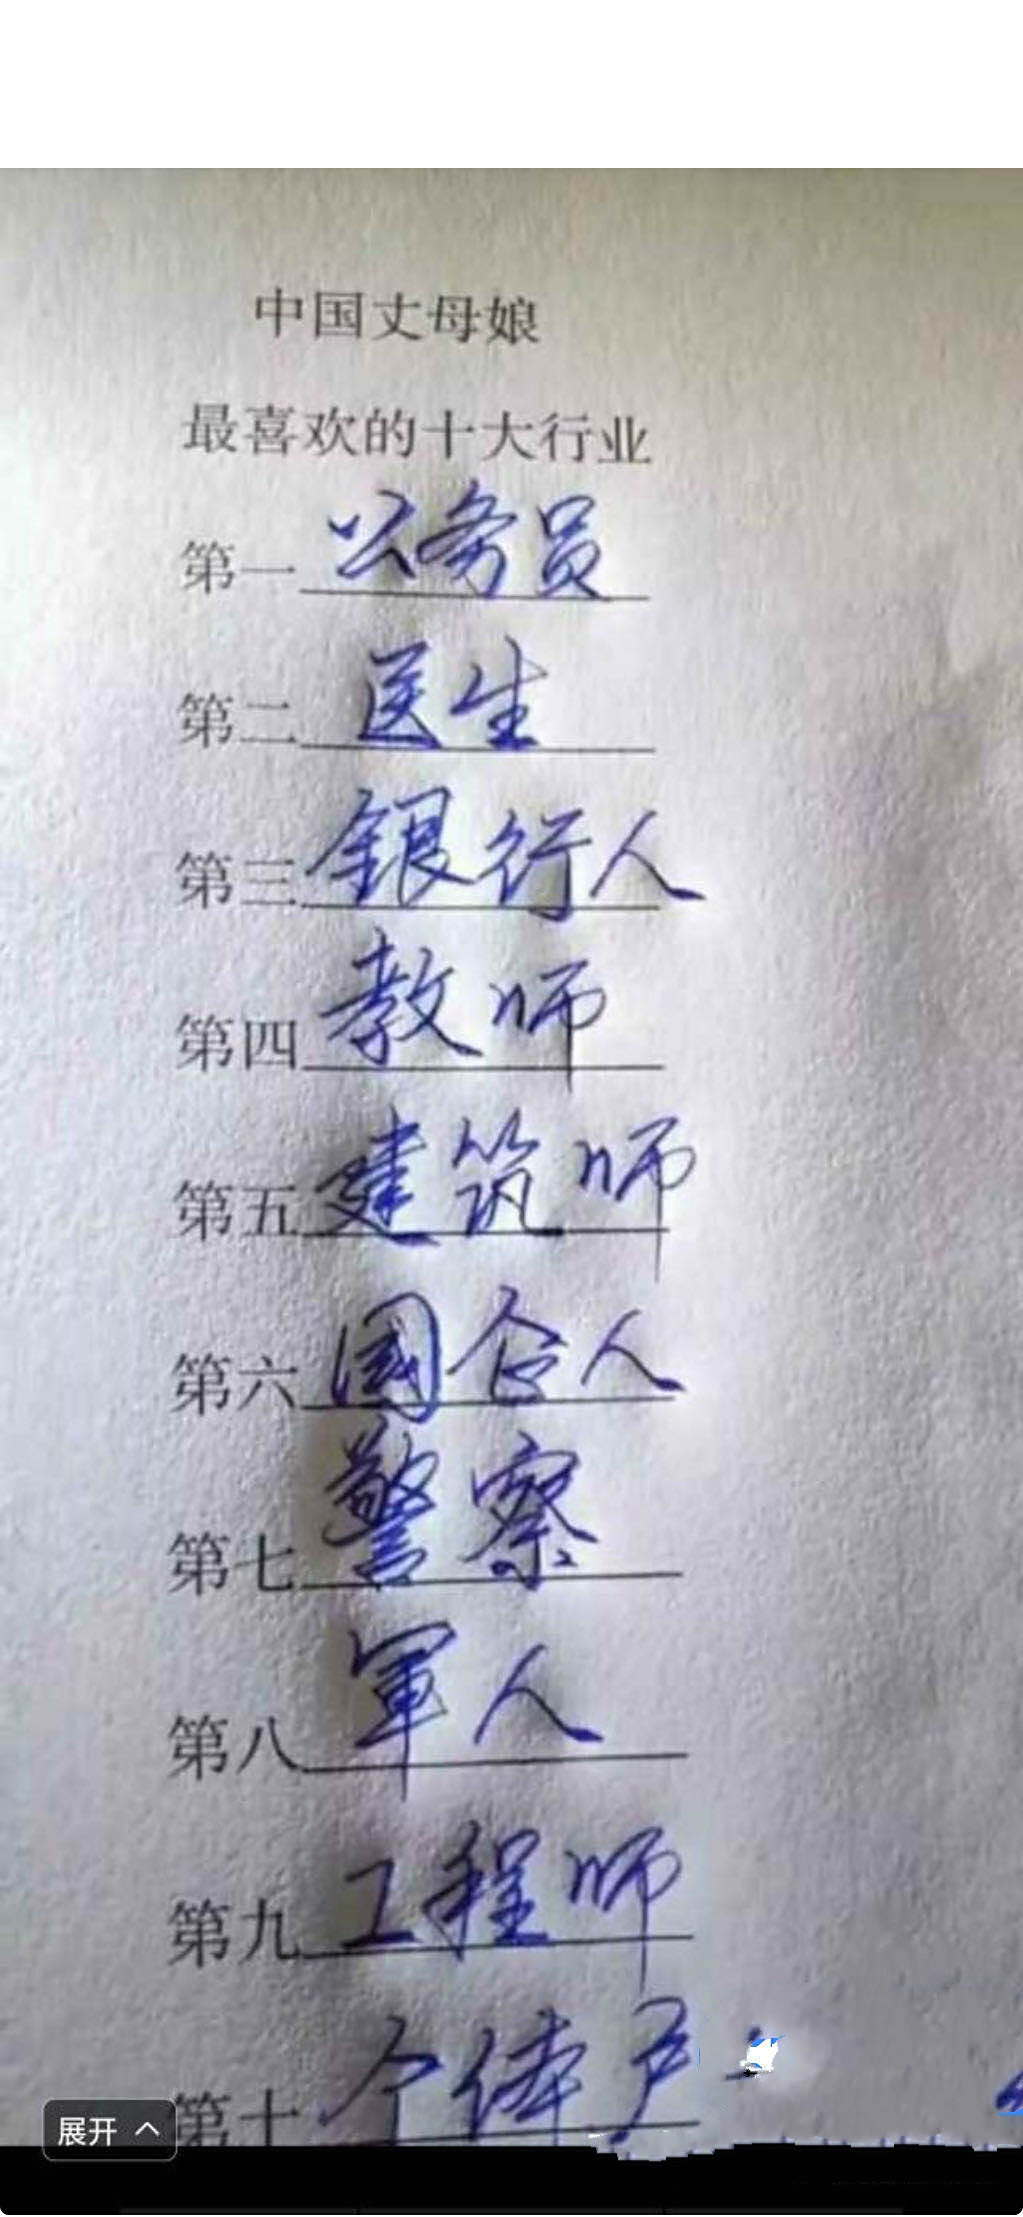 中国丈母娘
最喜欢的十大行业
第一 公务员
第二 医生
第三 銀行人
第四 教师
第五 建筑师
第六 國企人
第七 警察
第八 軍人
第九 工程师
第十 个体户
展开